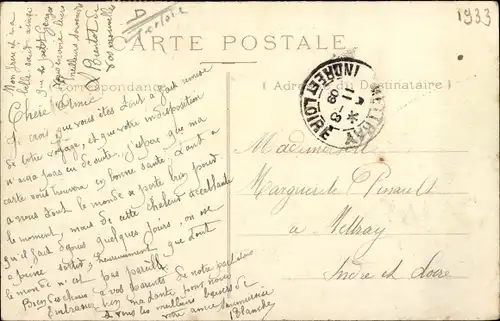 1933
CARTE POSTALE
Correspondance
( Adresse du Destinataire )
METTRAY
11-8
09
INDRE ET LOIRE
Mon père et ma
belle sœur ainsi
que le petit Georges
vous envoie leurs
meilleurs souvenirs
Chère Amie
Je crois que vous êtes dont a fait remise
de votre voyage, et que votre indisposition
n'aura pas eu de suite, j'espère que ma
carte vous trouvera en bonne santé, dont
a nous tout le monde se porte bien pour
le moment, mais de cette chaleur accablante
qu'il fait depuis quelques jours, on ose
a peine sortir, heureusement que tout
le monde n'est pas pareille.
Bien des choses a vos parents de notre part
Embrassez bien ma tante pour nous
a vous les meilleurs baisers de
votre amie
Blanche
Mademoiselle
Marguerite Pinault
à Mettray
Indre et Loire